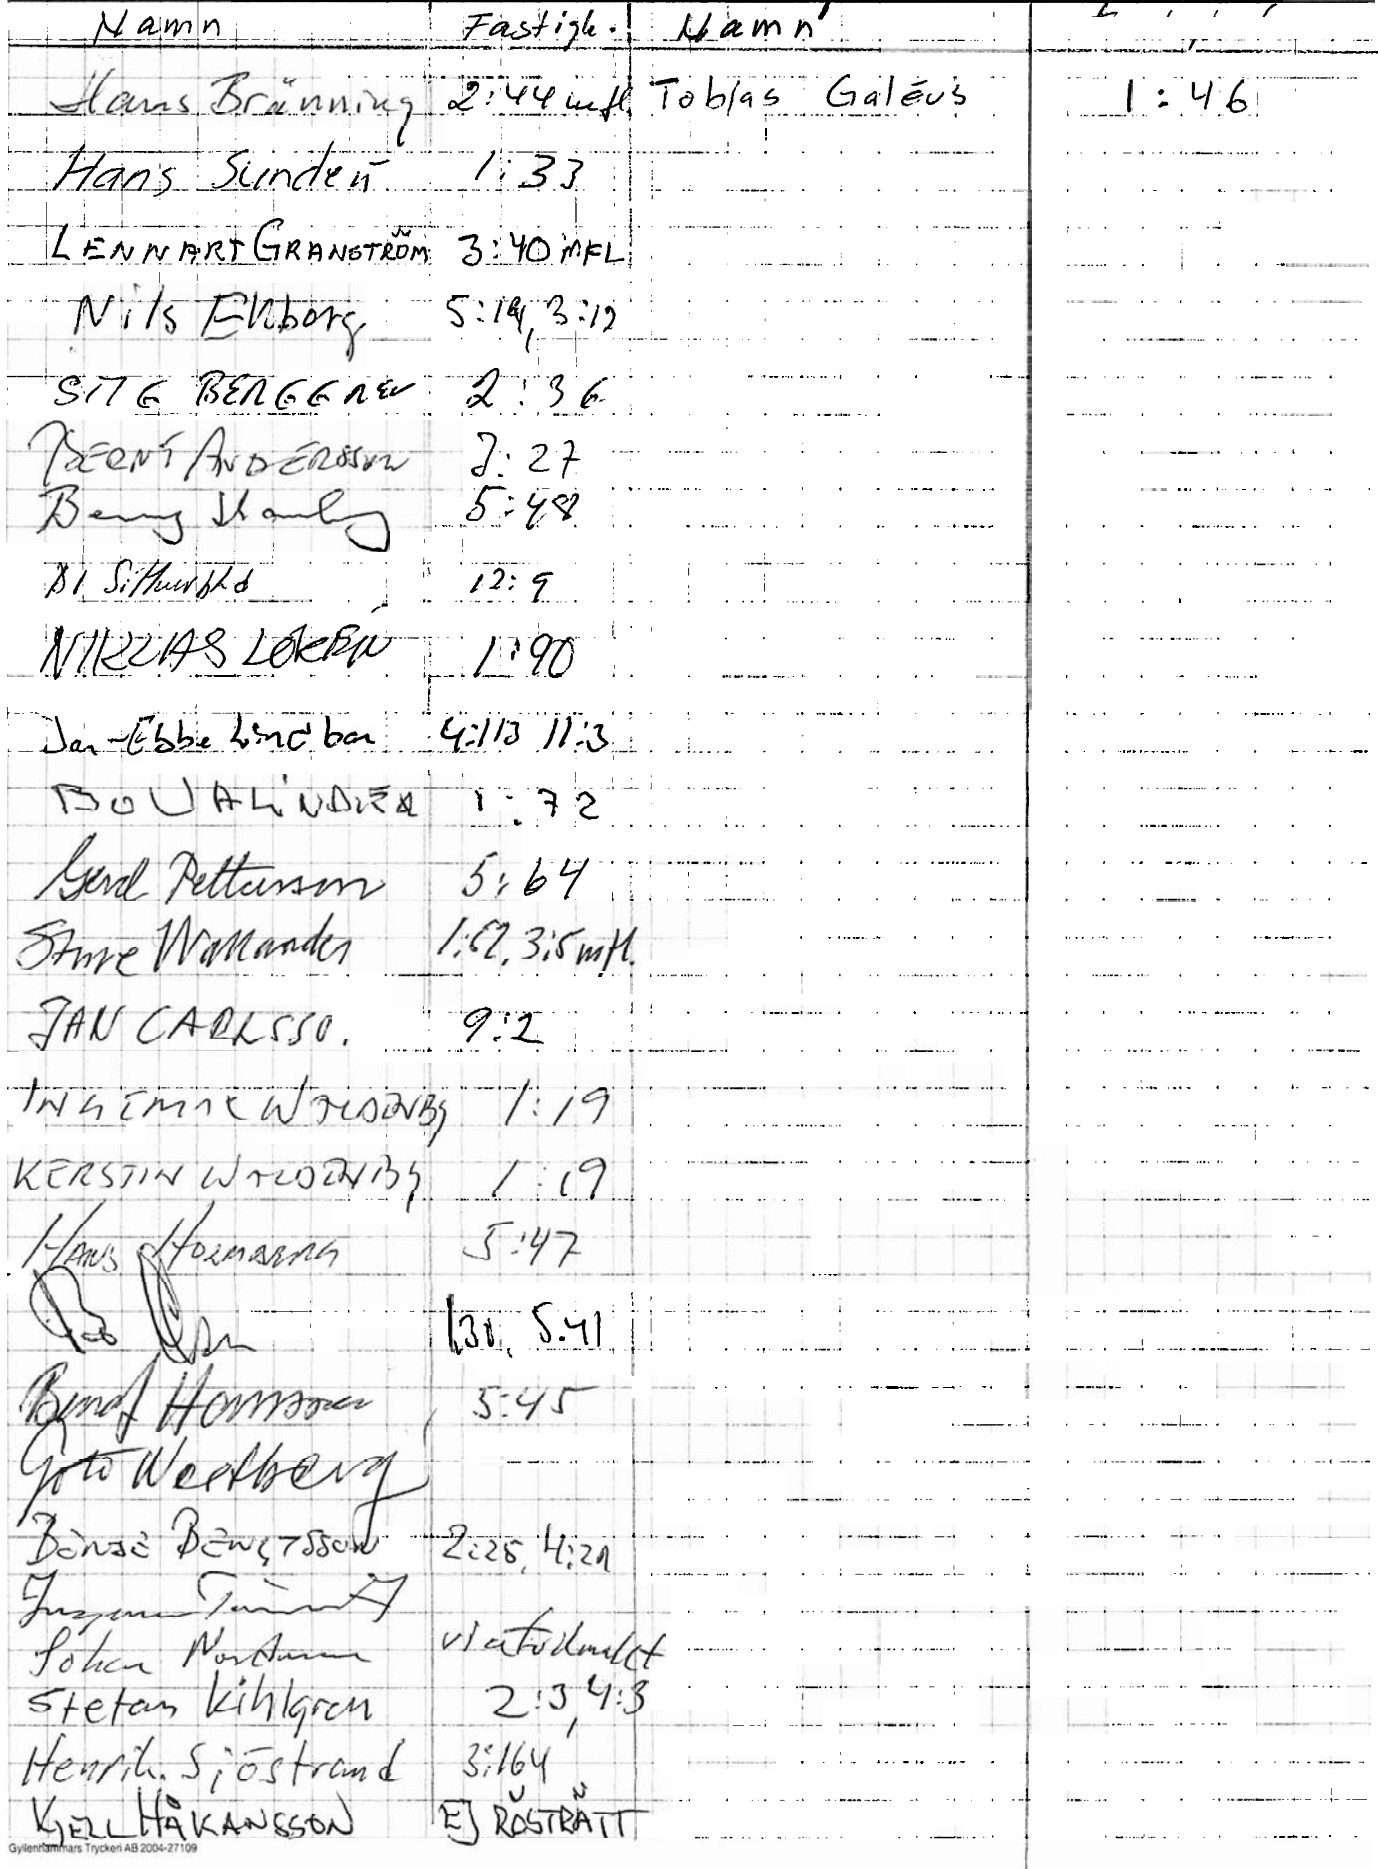 Namn Fastigh. Namn
Hans Bränning 2:44 mfl Tobias Galéus 1:46
Hans Sundén 1:33
LENNART GRANSTRÖM 3:40 MFL
Nils Ekborg 5:14, 3:12
STIG BERGGREN 2:36
BERNT ANDERSSON 2:27
Benny 5:48
12:9
NIKLAS LOKRIN 1:90
Jan-Ebbe Lindbom 4:113 11:3
BO VALINDER 1:72
Gerd Pettersson 5:64
Sture Wallander 1:52, 3:5 mfl.
JAN CARLSSO. 9:2
INGEMAR WALDENBY 1:19
KERSTIN WALDENBY 1:19
HANS HOLMBERG 5:47
5:41
Bengt Hansson 5:45
Göte Westberg
BÖRJE BENGTSSON 2:25, 4:21
Johan
Stefan Kihlgren 2:3, 4:3
Henrik Sjöstrand 3:164
KJELL HÅKANSSON EJ RÖSTRÄTT
Gyllenhammars Tryckeri AB 2004-27109